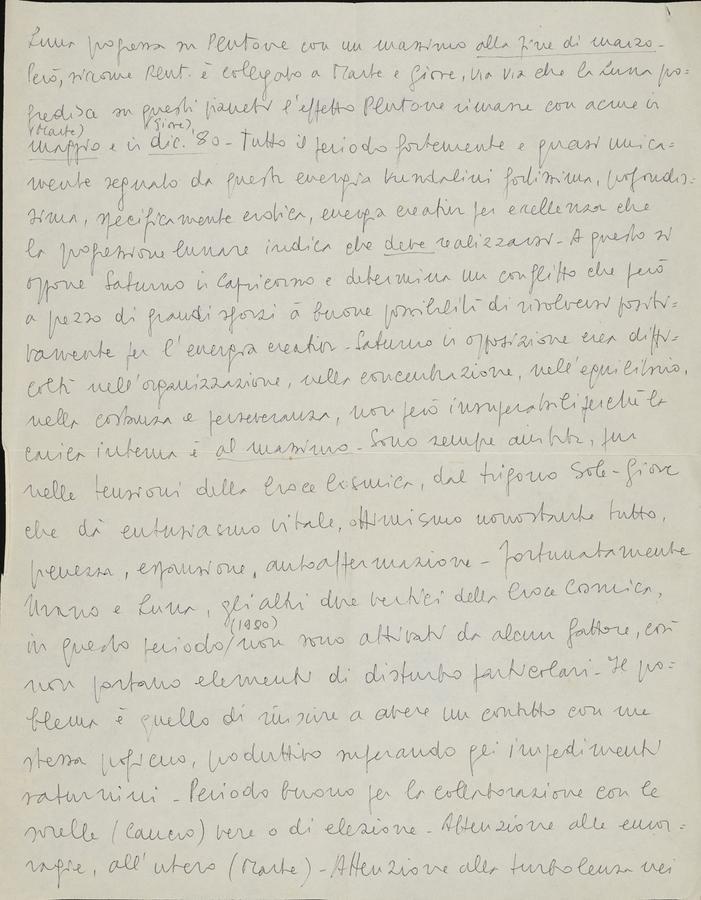 Luna progressa su Plutone con un massimo alla fine di marzo -
Però, siccome Plut. è collegato a Marte e Giove, via via che la Luna pro=
gredisce su questi pianeti l'effetto Plutone rimane con acme in
(Marte) (Giove)
maggio e in dic. '80 - Tutto il periodo fortemente e quasi unica=
mente segnato da questa energia Kundalini fortissima, profondis=
sima, specificamente erotica, energia creativa per eccellenza che
la progressione lunare indica che deve realizzarsi - A questo si
oppone Saturno in Capricorno e determina un conflitto che però
a prezzo di grandi sforzi à buone possibilità di risolversi positi=
vamente per l'energia creativa - Saturno in opposizione crea diffi=
coltà nell'organizzazione, nella concentrazione, nell'equilibrio,
nella costanza e perseveranza, non però insuperabili perché la
carica interna è al massimo - Sono sempre aiutata, pur
nelle tensioni della Croce Cosmica, dal trigono Sole-Giove
che dà entusiasmo vitale, ottimismo nonostante tutto,
pienezza, espansione, autoaffermazione - Fortunatamente
Urano e Luna, gli altri due vertici della Croce Cosmica,
(1980)
in questo periodo / non sono attivati da alcun fattore, così
non portano elementi di disturbo particolari - Il pro=
blema è quello di riuscire a avere un contatto con me
stessa proficuo, produttivo superando gli impedimenti
saturnini - Periodo buono per la collaborazione con le
sorelle (Cancro) vere o di elezione - Attenzione alle emor=
ragie, all'utero (Marte) - Attenzione alla turbolenza nei